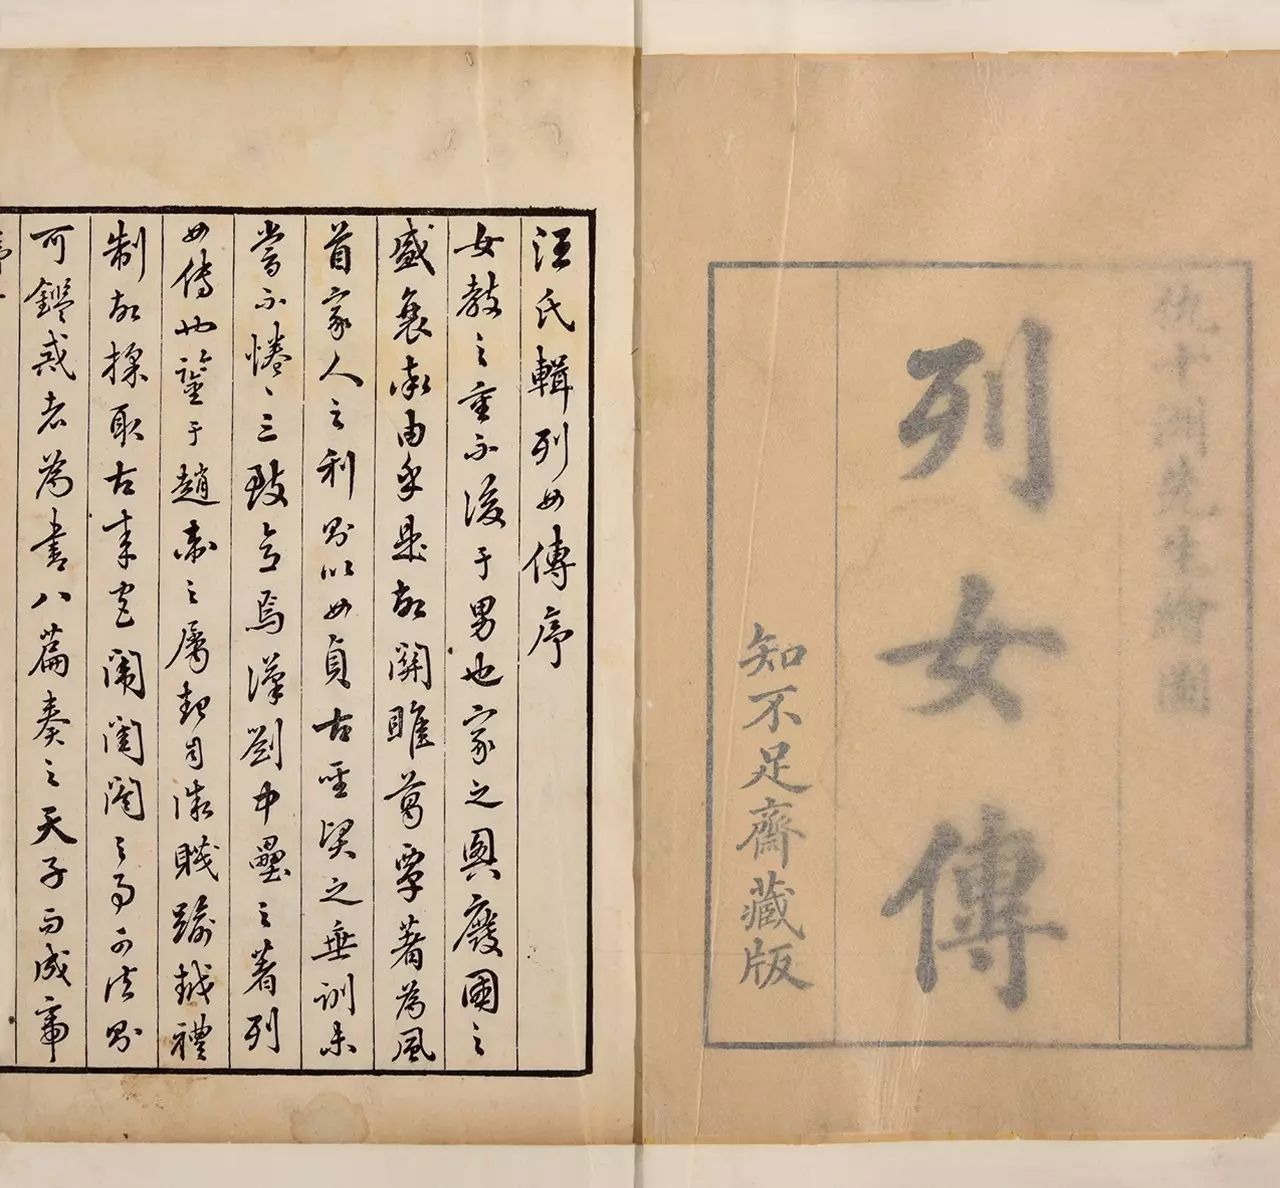 仇十洲先生繪圖
列女傳
知不足齋藏版
汪氏輯列女傳序
女教之重不後于男也家之興廢國之
盛衰率由乎是故關雎葛覃著為風
首家人之利則以女貞古聖賢之垂訓未
嘗不惓〻三致意焉漢劉中壘之著列
女傳也鑒于趙衛之屬起自微賤踰越禮
制故採取古來宮闈閨閤之事可法則
可鑑戒者為書八篇奏之天子而成帝